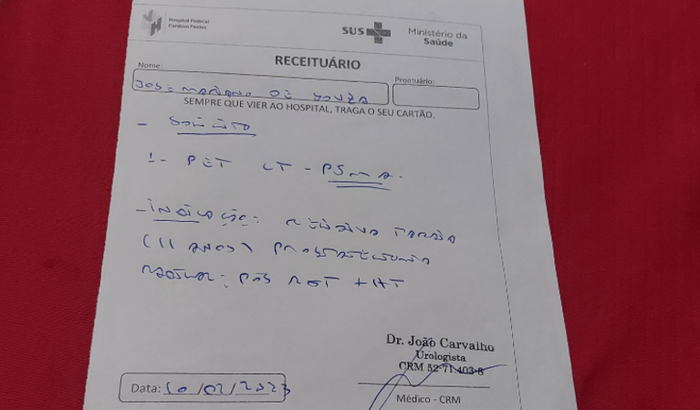 Hospital Federal
Cardoso Fontes
SUS
Ministério da
Saúde
RECEITUÁRIO
Nome:
Prontuário:
SEMPRE QUE VIER AO HOSPITAL, TRAGA O SEU CARTÃO.
- SOLICITO
1- PET CT - PSMA.
- INDICAÇÃO:
(11 ANOS) PROSTATECTOMIA
RADICAL: PÓS + HT
Dr. João Carvalho
Urologista
CRM 52-71.403-8
Data: 10/02/2023
Médico - CRM